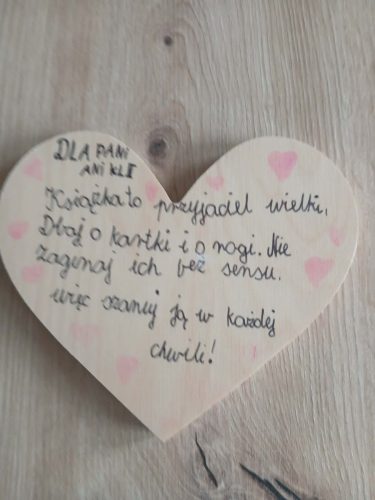 DLA PANI
ANI KL I
Książka to przyjaciel wielki,
Dbaj o kartki i o rogi. Nie
zaginaj ich bez sensu.
więc szanuj ją w każdej
chwili!